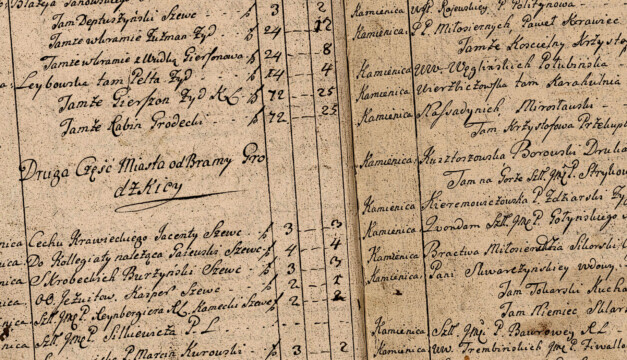 Tam Deptuszyński Szewc p 3 2
Tamże w bramie Fuzman Żyd p 24 12
Tamże w bramie z Wudką Gierszonowa p 24 8
Leybowska tam Pelta Żyd p 24 4
Tamże Gierszon Żyd RL p 72 25
Tamże Rabin Grodecki p 72 25
Druga Część Miasta od Bramy Gro
dzkiey
nica Cechu Krawieckiego Jacenty Szewc p 3 3
nica Do Kollegiaty należąca Gajewski Szewc p 4 4
nica Skrobeckich Burżyński Szewc p 3 3
nica OO Jezuitow Kasper Szewc p 2 1
nica Szl. Jmę P. Leynbergiera RL Kamecki Szewc p 2 2
nica Szl. Jmę P. Silkiewicza P. L
P. Marcin Kurowski p 3 2
Kamienica Wgo Rojewskiey P. Politynowa
Kamienica PP. Miłosiernych, Paweł Krawiec
Tamże Kościelny Krzysto
Kamienica Ww. Węglińskich Polubińska
Kamienica Wierzbiczowska tam Karakulnia
Kamienica Nassadynich, Mirosławski
Tam Krzysztofowa Przekup
Kamienica Kusztoszowska Borowski Druka
Tam na Gorze Szl. Jmę P. Stryko
Kamienica Hieremowiczowska P. Zdżarski Zy
Kamienica Quondam Szl. Jmę P. Gołyńskiego
Kamienica Bractwa Miłosierdzia Sikorski
Kamienica Pani Skwarczyńskiey wdowy
Tam Tokarski Kucha
Tam Niemiec Sklar
Kamienica Szl. Jmę P. Baurowey RL
Kamienica Ww. Trembińskich P. Fiwallo